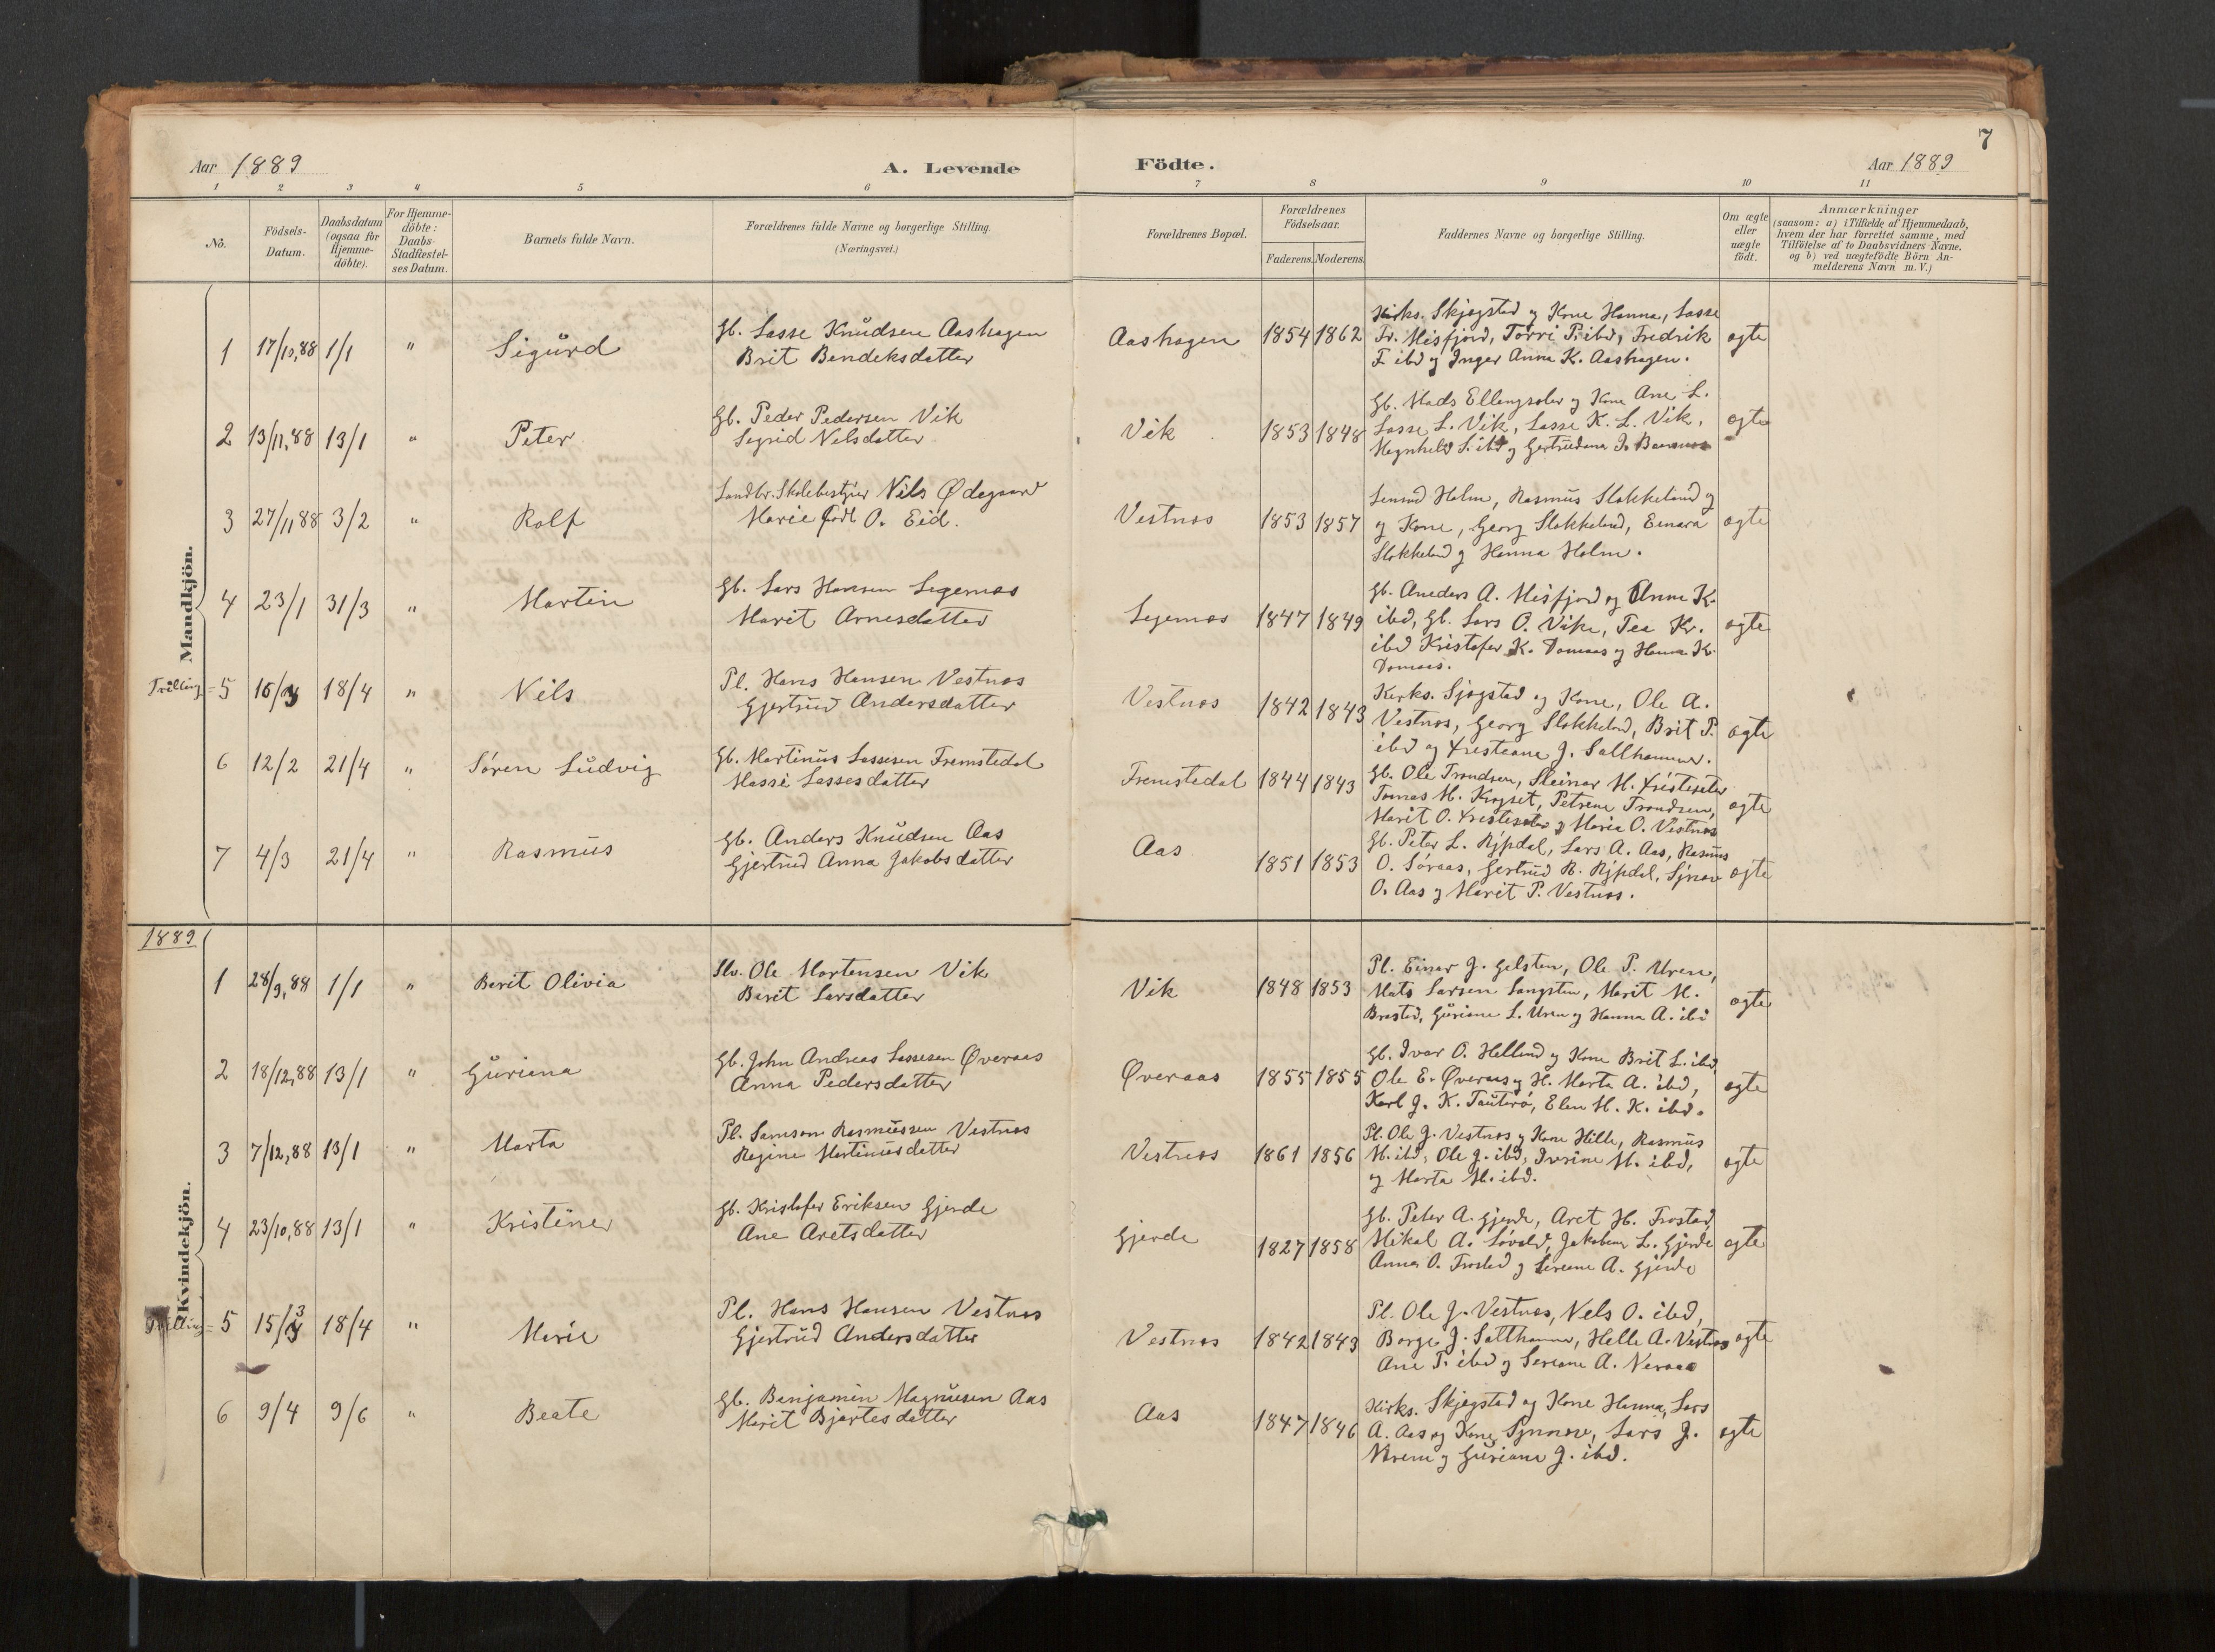 7
Aar 1889
A. Levende
Födte.
Aar 1889
1 2 3 4 5 6 7 8 9 10 11
No.
Födsels-
Datum.
Daabsdatum
(ogsaa for
Hjemme-
döbte).
For Hjemme-
döbte:
Daabs-
Stadfæstel-
ses Datum.
Barnets fulde Navn.
Forældrenes fulde Navne og borgerlige Stilling.
(Næringsvei.)
Forældrenes Bopæl.
Forældrenes
Födselsaar.
Faderens. Moderens.
Faddernes Navne og borgerlige Stilling.
Om ægte
eller
uægte
födt.
Anmærkninger
(saasom: a) i Tilfælde af Hjemmedaab,
hvem der har forrettet samme, med
Tilföielse af to Daabsvidners Navne.
og b) ved uægtefödte Börn An-
melderens Navn m. V.)
Mandkjön.
1 17/10,88 1/1 " Sigurd
Gb. Lasse Knudsen Aashagen
Brit Bendeksdatter
Aashagen 1854 1862
Kirks. Skjegstad og Kone Hanna, Lasse
Fr. Misfjord, Torri P. ibd, Fredrik
F. ibd og Inger Anna K. Aashagen.
ægte
2 13/11,88 13/1 " Peter
Gb. Peder Pedersen Vik
Segrid Nelsdatter
Vik 1853 1848
Gb. Mads Ellengsæter og Kone Ane L.
Lasse L. Vik, Lasse K. L. Vik,
Magnhild S. ibd og Gertrudana J.
ægte
3 27/11 88 3/2 " Rolf
Landbr. Skolebestyrer Nils Ødegaard
Marie født O. Eid.
Vestnæs 1853 1857
Holm, Rasmus Stokkeland og
og Kone, Georg Stokkeland, Einara
Stokkeland og Hanna Holm.
ægte
4 23/1 31/3 " Martin
Gb. Lars Hansen Legernæs
Marit Arnesdatter
Legernæs 1847 1849
Gb. Aneders A. Misfjord og Anne K.
ibd, Gb. Lars O. Vike, Tea Kr.
ibd Kristofer K. Domaas og Hanna K.
Domaas.
ægte
Tvilling = 5 15/3 18/4 " Nils
Pl. Hans Hansen Vestnæs
Gjertrud Andersdatter
Vestnæs 1842 1843
Kerks. Sjøgstad og Kone, Ole A.
Vestnæs, Georg Stokkeland, Brit P.
ibd og Kresteane J. Salthammer.
ægte
6 12/2 21/4 " Søren Ludvig
Gb. Martinus Lassesen Fremstedal
Massi Lassesdatter
Fremstedal 1844 1843
Gb. Ole Trondsen, Steinar M.
Tomas M. Kroset, Petrine Trondsen,
Marit O. og Marie O. Vestnæs
ægte
7 4/3 21/4 " Rasmus
Gb. Anders Knudsen Aas
Gjertrud Anna Jakobsdatter
Aas 1851 1853
Gb. Peter L. Rypdal, Lars A. Aas, Rasmus
O. Søraas, Gertrud R. Rypdal, Synøv
O. Aas og Marit P. Vestnæs.
ægte
1889
Kvindekjön.
1 28/9,88 1/1 " Berit Olivia
Slv. Ole Mortensen Vik
Berit Larsdatter
Vik 1848 1853
Pl. Einar J. Gelsten, Ole P. Uren,
Mats Larsen Langsten, Marit M.
Brasted, Guriane L. Uren og Hanna A. ibd
ægte
2 18/12,88 13/1 " Guriana
Gb. John Andreas Lassesen Øveraas
Anna Pedersdatter
Øveraas 1855 1855
Gb. Ivar O. Helland og Kone Brit L. ibd,
Ole E. Øveraas og H. Marta A. ibd,
Karl J. K. Tauterø, Elen M. K. ibd.
ægte
3 7/12,88 13/1 " Marta
Pl. Samson Rasmussen Vestnæs
Regine Martinusdatter
Vestnæs 1861 1856
Pl. Ole J. Vestnæs og Kone Hille, Rasmus
M. ibd, Ole J. ibd, Iverine M. ibd,
og Marta M. ibd.
ægte
4 23/10,88 13/1 " Kristine
Gb. Kristofer Eriksen Gjerde
Ane Aretsdatter
Gjerde 1827 1858
Gb. Peter A. Gjerde, Aret H. Frostad,
Mikal A. Løvold, Jakobena L. Gjerde
Anna O. Frostad og Sereane A. Gjerde
ægte
Tvilling = 5 15/3 18/4 " Marie
Pl. Hans Hansen Vestnæs
Gjertrud Andersdatter
Vestnæs 1842 1843
Pl. Ole J. Vestnæs, Nels O. ibd,
Børge J. Salthammer, Helle A. Vestnæs
Ane T. ibd og Sereane A. Neraas
ægte
6 9/4 9/6 " Beate
Gb. Benjamin Magnusen Aas
Marit Bjartesdatter
Aas 1847 1846
Kirks. Skjegstad og Kone Hanna, Lars
A. Aas og Kone Synnøv, Lars J.
Vrem og Guriane J. ibd.
ægte